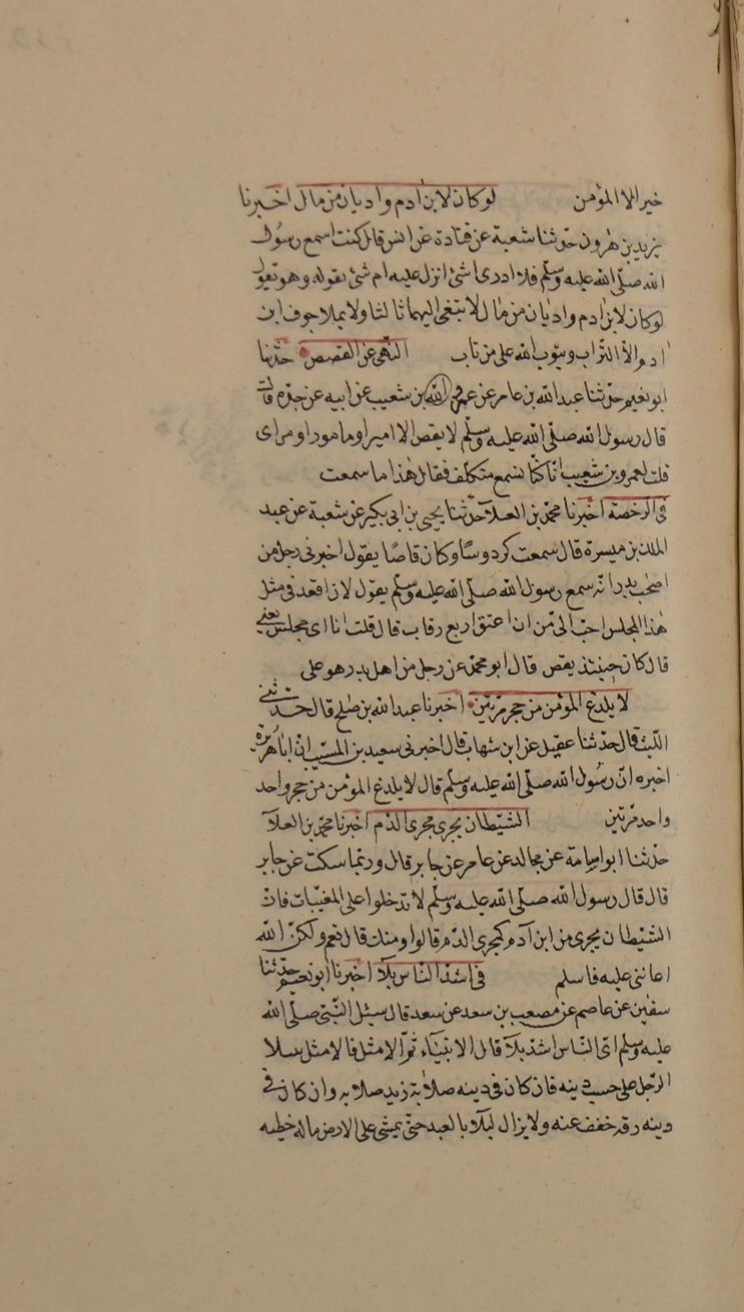 خير الا المؤمن لو كان لابن ادم واديان من مال اخبرنا
يزيد بن هرون حدثنا شعبة عن قتادة عن انس قال كنت اسمع رسول
الله صلى الله عليه وسلم فلا ادرى اشئ انزل عليه ام شئ يقوله وهو يقول
لو كان لابن ادم واديان من مال لابتغى اليهما ثالثا ولا يملا جوف ابن
ادم الا التراب ويتوب الله على من تاب النهى عن القصص حدثنا
ابو نعيم حدثنا عبد الله بن عامر عن عمرو بن شعيب عن ابيه عن جده قال
قال رسول الله صلى الله عليه وسلم لا يقص الا امير او مامور او مراى
قلت لعمرو بن شعيب انا كنا نسمع متكلف فقال هذا ما سمعت
فى الرخصة اخبرنا محمد بن العلاء حدثنا يحيى بن ابى بكير عن شعبة عن عبد
الملك بن ميسرة قال سمعت كردوسا وكان قاصا يقول اخبرنى رجل من
اصحب بدر انه سمع رسول الله صلى الله عليه وسلم يقول لان اقعد فى مثل
هذا المجلس احب الى من ان اعتق اربع رقاب قال قلت انا اى مجلس يعنى
قال كان حينئذ يقص قال ابو محمد عن رجل من اهل بدر هو على
لا يلدغ المؤمن من جحر مرتين اخبرنا عبد الله بن صلح قال حدثنى
الليث قال حدثنا عقيل عن ابن شهاب قال اخبرنى سعيد بن المسيب ان ابا هريرة
اخبره ان رسول الله صلى الله عليه وسلم قال لا يلدغ المؤمن من جحر واحد
واحد مرتين الشيطان يجرى مجرى الدم اخبرنا محمد بن العلاء
حدثنا ابو اسامة عن مجالد عن عامر عن جابر قال وربما سكت عن جابر
قال قال رسول الله صلى الله عليه وسلم لا تدخلوا على المغيبات فان
الشيطان يجرى من ابن آدم كمجرى الدم قالوا ومنك قال نعم ولكن الله
اعاننى عليه فاسلم فى اشد الناس بلاء اخبرنا ابو نعيم حدثنا
سفين عن عاصم عن مصعب بن سعد عن سعد قال سئل النبى صلى الله
عليه وسلم اى الناس اشد بلاء قال الانبياء ثم الامثل فالامثل يبتلا
الرجل على حسب دينه فان كان فى دينه صلابة زيد صلابة وان كان فى
دينه رقة خفف عنه ولا يزال البلاء بالعبد حتى يمشى على الارض ماله خطيه